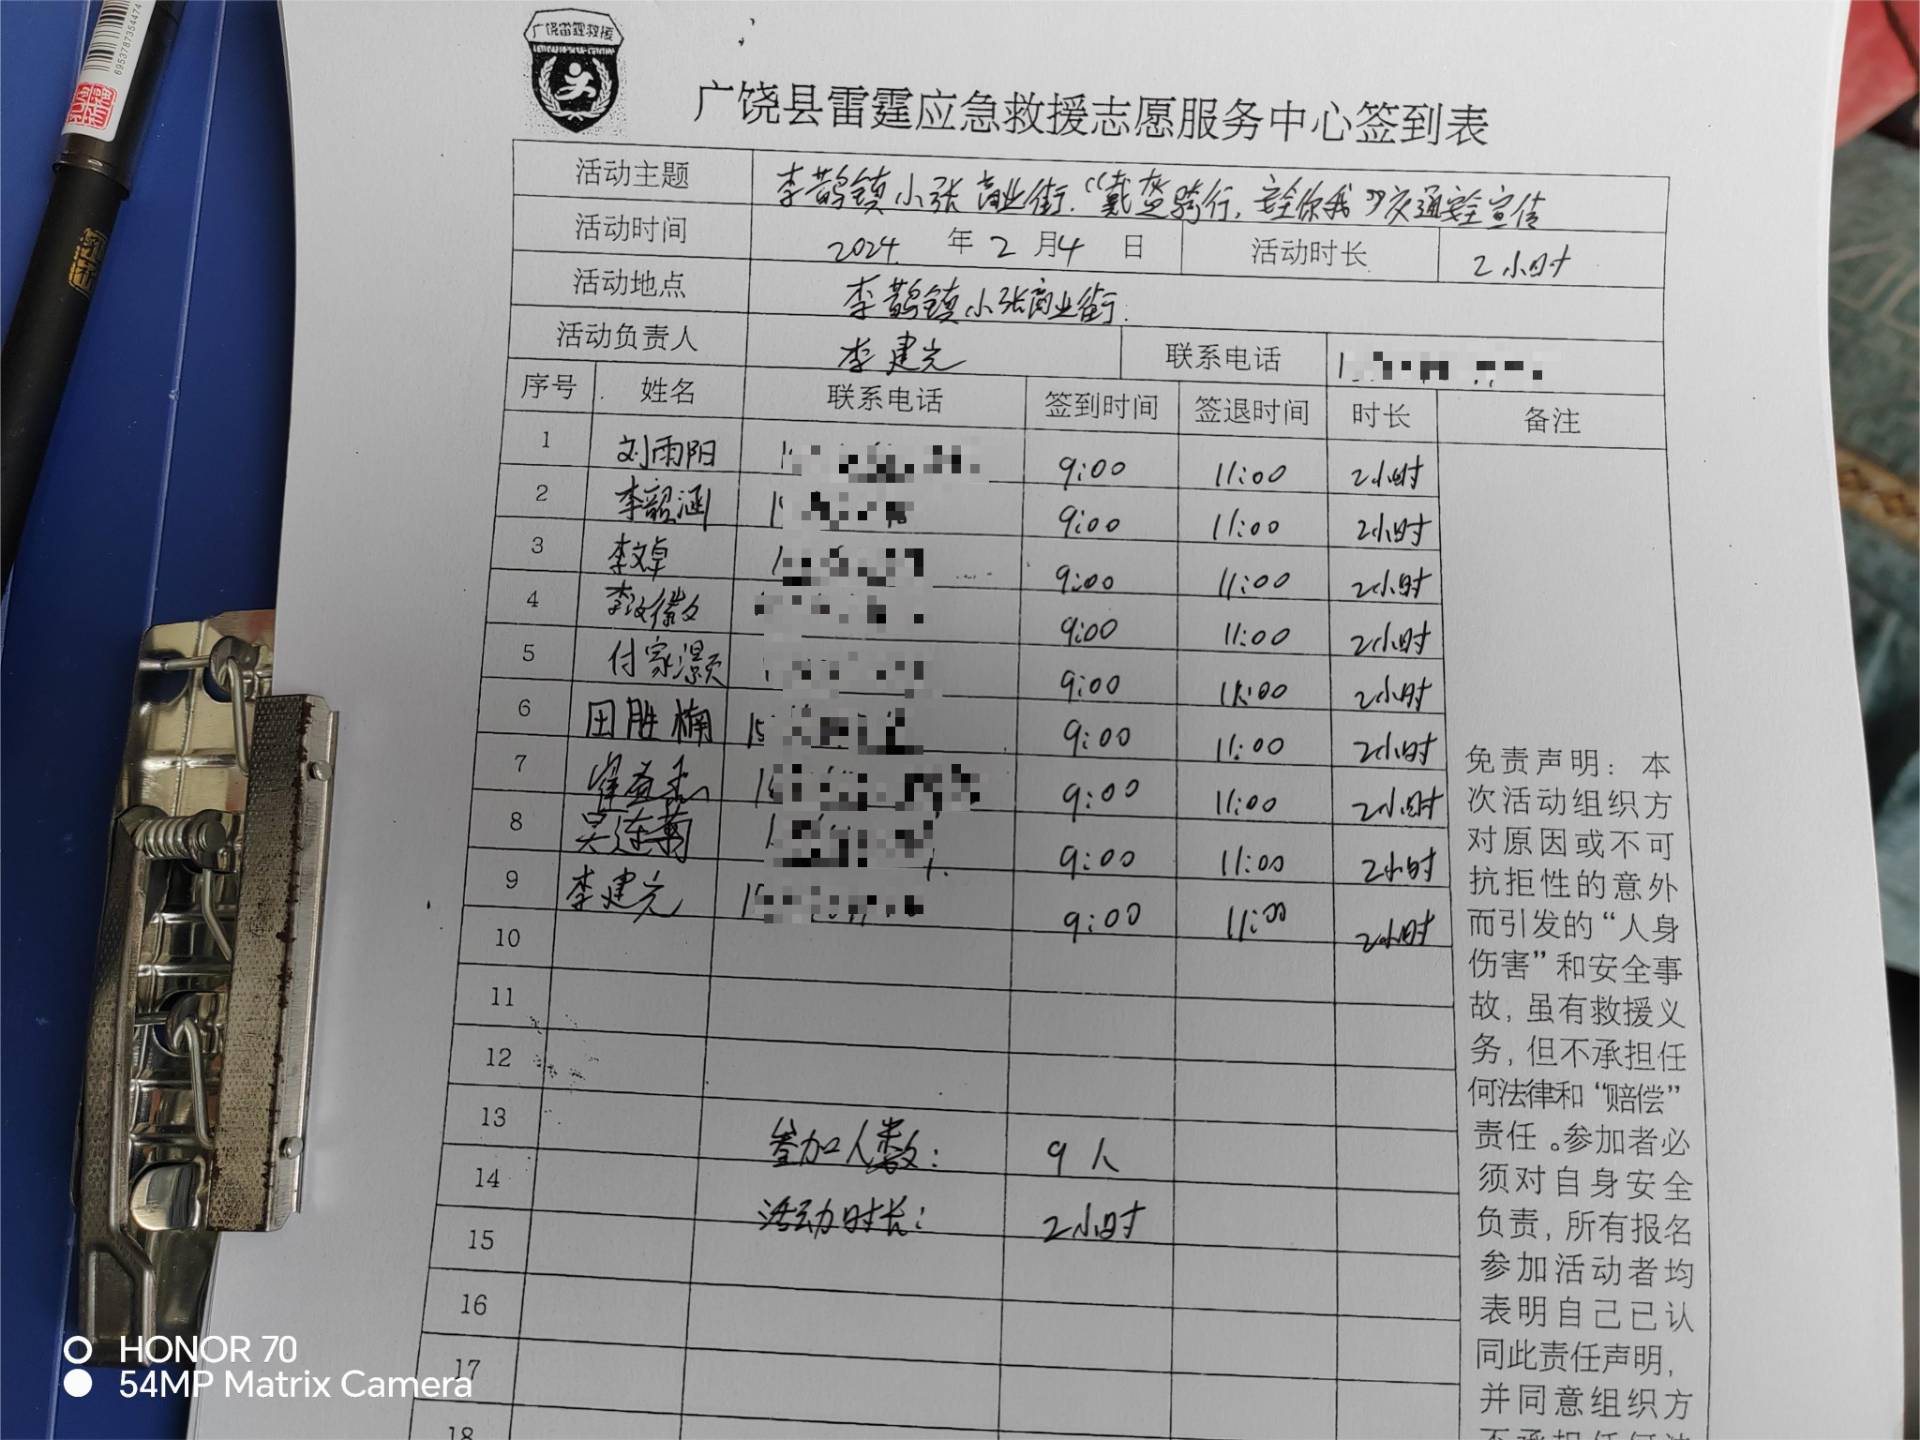 6953787354474
广饶雷霆救援
广饶县雷霆应急救援志愿服务中心签到表
活动主题 李鹊镇小张商业街.“戴盔骑行,安全你我”交通安全宣传
活动时间 2024. 年 2 月 4 日 活动时长 2小时
活动地点 李鹊镇小张商业街.
活动负责人 李建光 联系电话 1
序号 姓名 联系电话 签到时间 签退时间 时长 备注
1 刘雨阳 1 9:00 11:00 2小时
2 李韶涵 1 9:00 11:00 2小时
3 李文卓 1 9:00 11:00 2小时
4 9:00 11:00 2小时
5 付家灏 9:00 11:00 2小时
6 田胜楠 15 9:00 11:00 2小时
7 崔益 1 9:00 11:00 2小时
8 吴莲菊 1 9:00 11:00 2小时
9 李建光 1 9:00 11:00 2小时
10
11
12
13 参加人数: 9人
14 活动时长: 2小时
15
16
17
18
免责声明: 本
次活动组织方
对原因或不可
抗拒性的意外
而引发的“人身
伤害”和安全事
故, 虽有救援义
务, 但不承担任
何法律和“赔偿”
责任。参加者必
须对自身安全
负责, 所有报名
参加活动者均
表明自己已认
同此责任声明,
并同意组织方
不承担任何法
HONOR 70
54MP Matrix Camera